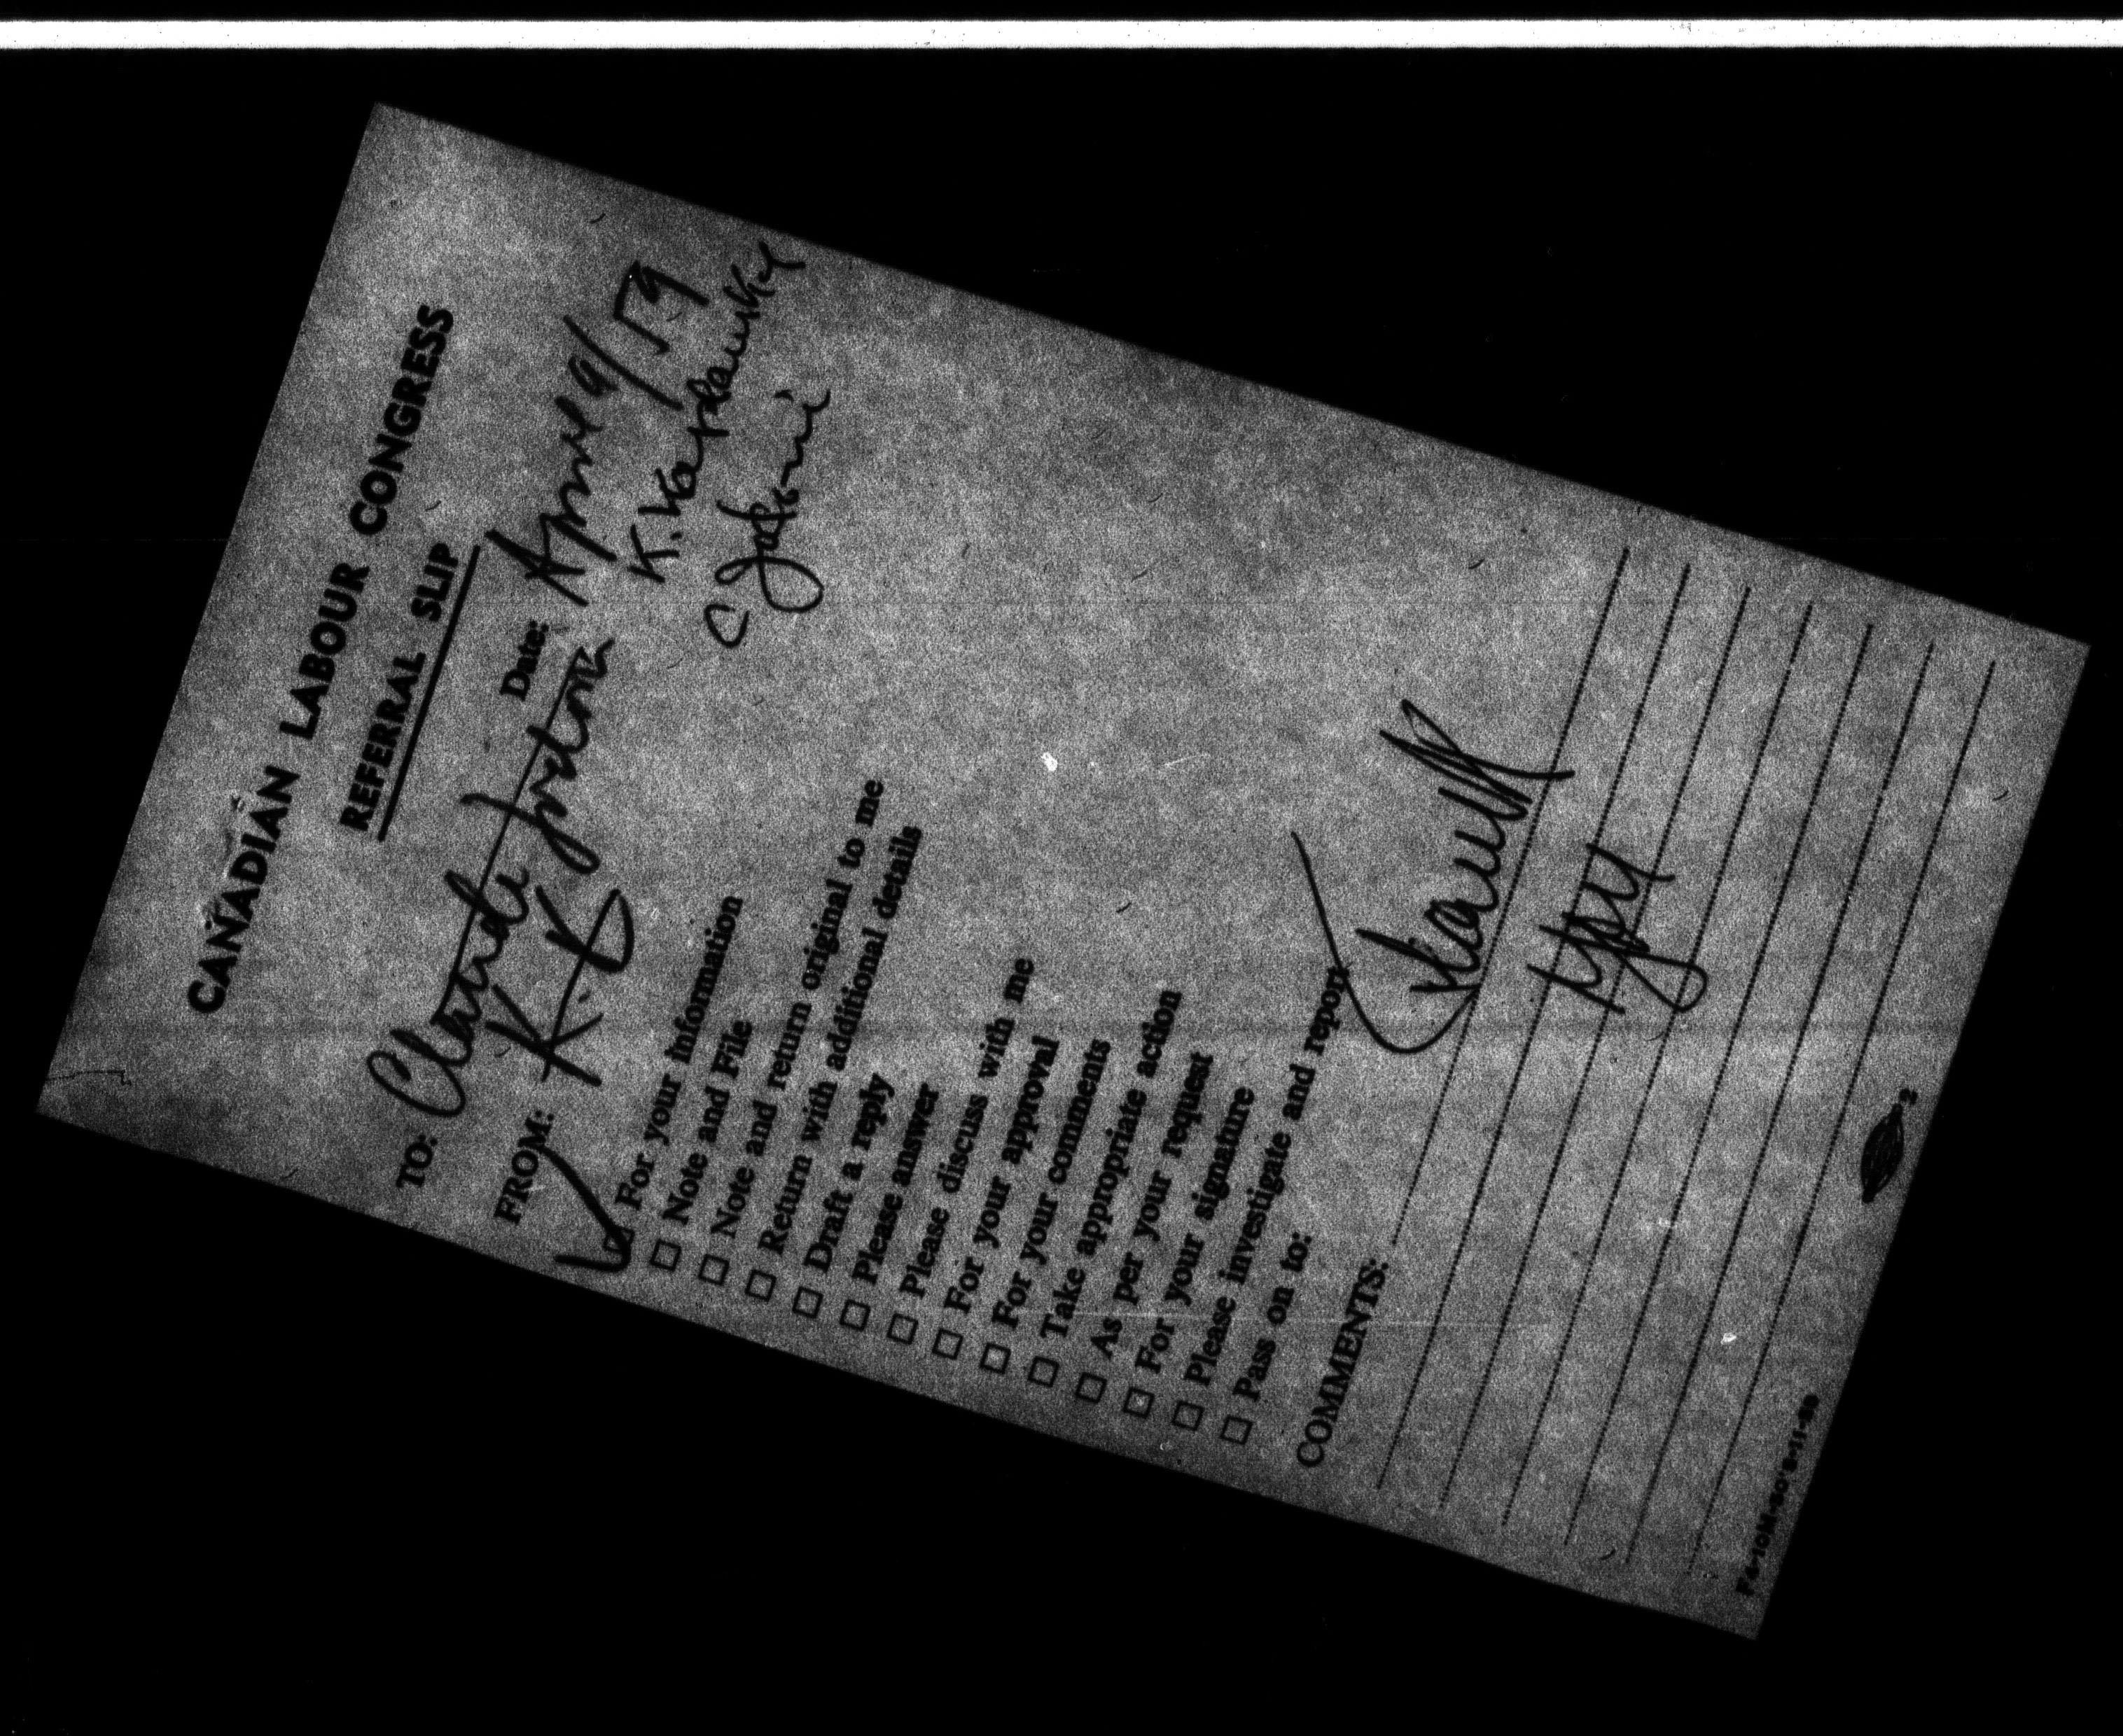 CANADIAN LABOUR CONGRESS
REFERRAL SLIP
TO: Claude Jodoin Date: April 9/59
FROM: K.K
☑ For your information
☐ Note and File
☐ Note and return original to me
☐ Return with additional details
☐ Draft a reply
☐ Please answer
☐ Please discuss with me
☐ For your approval
☐ For your comments
☐ Take appropriate action
☐ As per your request
☐ For your signature
☐ Please investigate and report
☐ Pass on to:
COMMENTS:
2